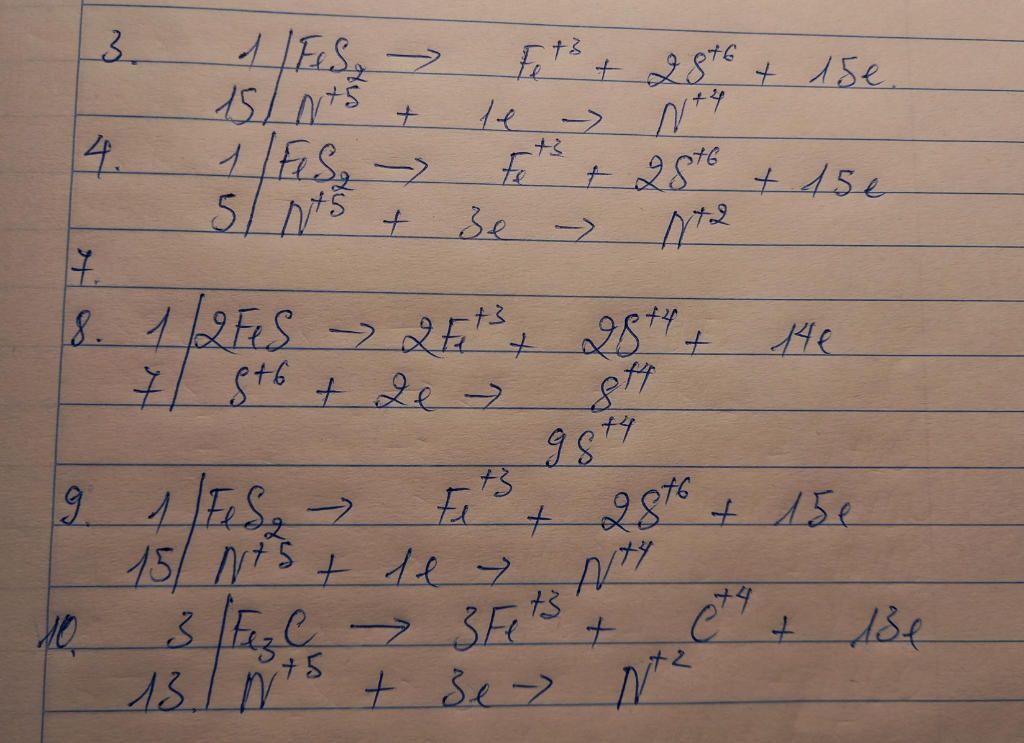 3. 1 | FeS₂ → Fe⁺³ + 2S⁺⁶ + 15e.
15 | N⁺⁵ + 1e → N⁺⁴
4. 1 | FeS₂ → Fe⁺³ + 2S⁺⁶ + 15e
5 | N⁺⁵ + 3e → N⁺²
7.
8. 1 | 2FeS → 2Fe⁺³ + 2S⁺⁴ + 14e
7 | S⁺⁶ + 2e → S⁺⁴
9S⁺⁴
9. 1 | FeS₂ → Fe⁺³ + 2S⁺⁶ + 15e
15 | N⁺⁵ + 1e → N⁺⁴
10. 3 | Fe₃C → 3Fe⁺³ + C⁺⁴ + 13e
13. | N⁺⁵ + 3e → N⁺²